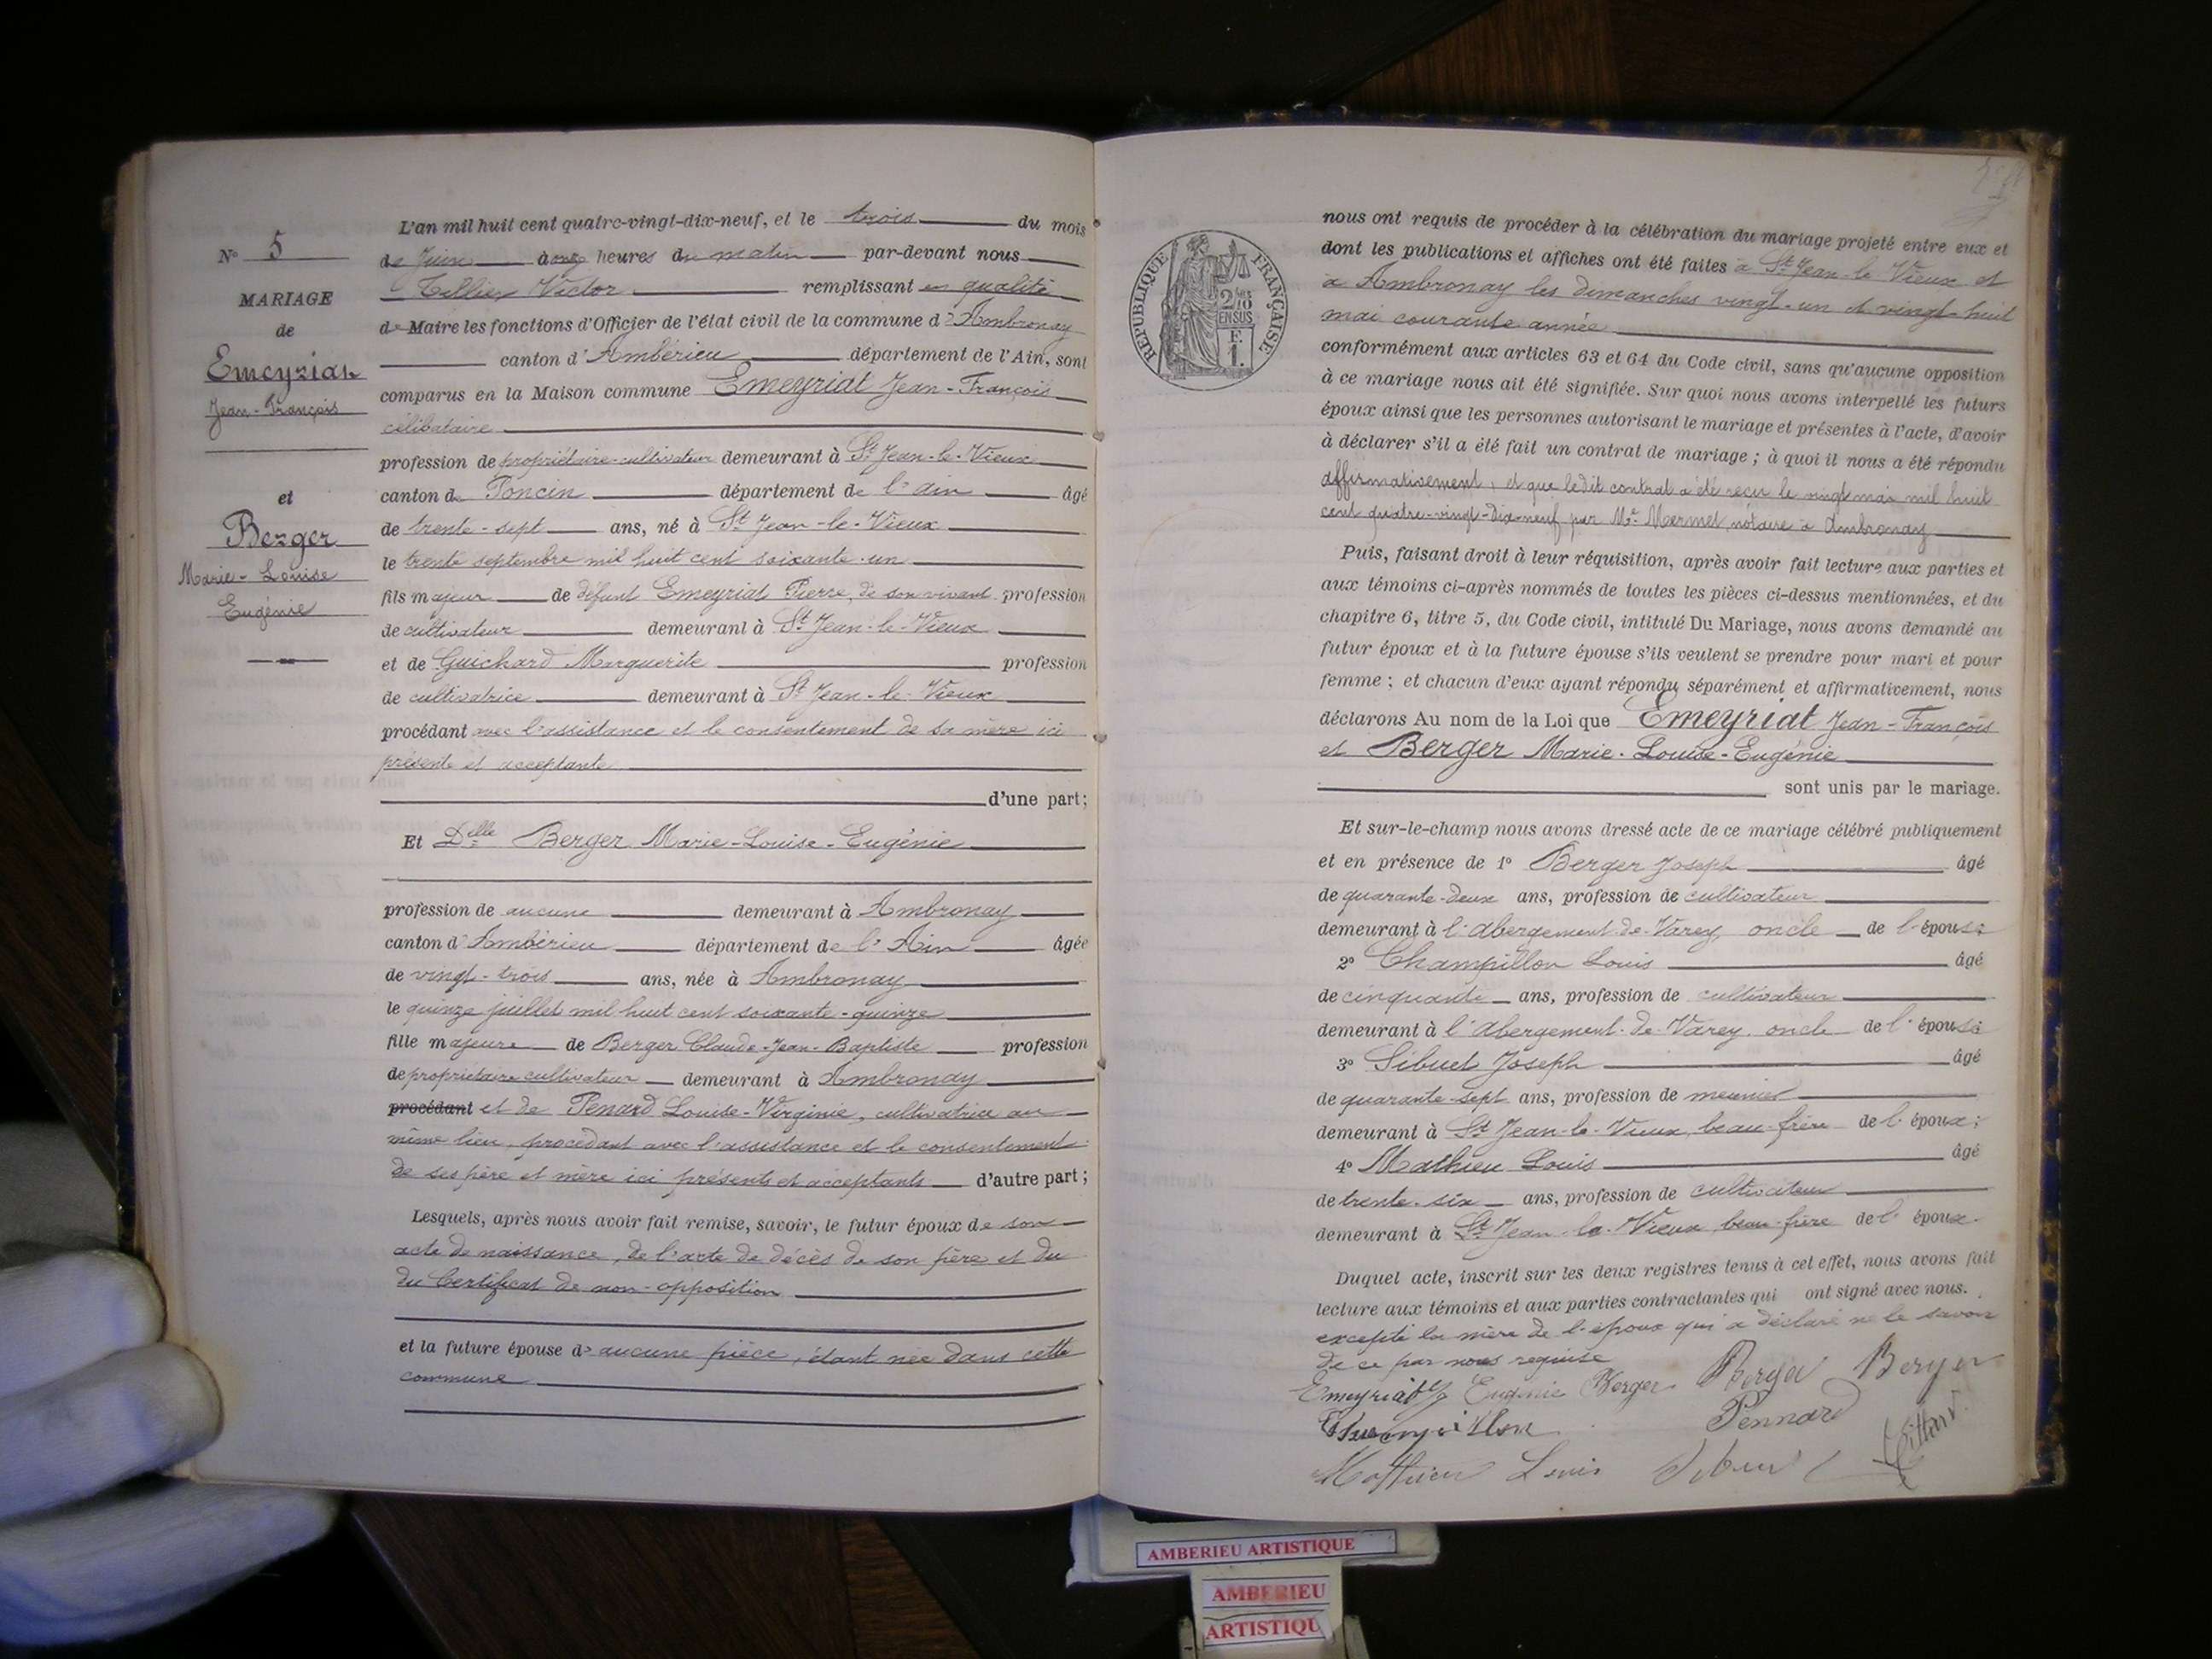 L'an mil huit cent quatre-vingt-dix-neuf, et le trois du mois
de Juin à onze heures du matin par-devant nous
Tillier Victor remplissant en qualité
de Maire les fonctions d'Officier de l'état civil de la commune d'Ambronay
canton d'Ambérieu département de l'Ain, sont
comparus en la Maison commune Emeyriat Jean-François
célibataire
profession de propriétaire-cultivateur demeurant à St Jean-le-Vieux
canton de Poncin département de l'ain âgé
de trente-sept ans, né à St Jean-le-Vieux
le trente septembre mil huit cent soixante-un
fils majeur de défunt Emeyriat Pierre, de son vivant profession
de cultivateur demeurant à St Jean-le-Vieux
et de Guichard Marguerite profession
de cultivatrice demeurant à St Jean-le-Vieux
procédant avec l'assistance et le consentement de sa mère ici
présente et acceptante
d'une part;
Et Delle Berger Marie-Louise-Eugénie
profession de aucune demeurant à Ambronay
canton d'Ambérieu département de l'Ain âgée
de vingt-trois ans, née à Ambronay
le quinze juillet mil huit cent soixante-quinze
fille majeure de Berger Claude-Jean-Baptiste profession
de propriétaire cultivateur demeurant à Ambronay
procédant et de Penard Louise-Virginie, cultivatrice au
même lieu, procédant avec l'assistance et le consentement
de ses père et mère ici présents et acceptants d'autre part;
Lesquels, après nous avoir fait remise, savoir, le futur époux de son
acte de naissance, de l'acte de décès de son père et du
du Certificat de non-opposition
et la future épouse d'aucune pièce, étant née dans cette
commune
No 5
MARIAGE
de
Emeyriat
Jean-François
et
Berger
Marie-Louise
Eugénie
REPUBLIQUE FRANÇAISE
2/10
EN SUS
F.
1.
nous ont requis de procéder à la célébration du mariage projeté entre eux et
dont les publications et affiches ont été faites à St Jean-le Vieux et
à Ambronay les dimanches vingt-un et vingt-huit
mai courante année
conformément aux articles 63 et 64 du Code civil, sans qu'aucune opposition
à ce mariage nous ait été signifiée. Sur quoi nous avons interpellé les futurs
époux ainsi que les personnes autorisant le mariage et présentes à l'acte, d'avoir
à déclarer s'il a été fait un contrat de mariage; à quoi il nous a été répondu
affirmativement, et que ledit contrat a été reçu le vingt mai mil huit
cent quatre-vingt-dix-neuf par Me Mermet, notaire à Ambronay
Puis, faisant droit à leur réquisition, après avoir fait lecture aux parties et
aux témoins ci-après nommés de toutes les pièces ci-dessus mentionnées, et du
chapitre 6, titre 5, du Code civil, intitulé Du Mariage, nous avons demandé au
futur époux et à la future épouse s'ils veulent se prendre pour mari et pour
femme; et chacun d'eux ayant répondu séparément et affirmativement, nous
déclarons Au nom de la Loi que Emeyriat Jean-François
et Berger Marie-Louise-Eugénie
sont unis par le mariage.
Et sur-le-champ nous avons dressé acte de ce mariage célébré publiquement
et en présence de 1o Berger Joseph âgé
de quarante-deux ans, profession de cultivateur
demeurant à l'abergement-de-Varey, oncle de l'épouse
2o Champillon Louis âgé
de cinquante ans, profession de cultivateur
demeurant à l'abergement-de-Varey, oncle de l'épouse
3o Sibuet Joseph âgé
de quarante-sept ans, profession de meunier
demeurant à St Jean-le-Vieux, beau-frère de l'époux;
4o Mathieu Louis âgé
de trente-six ans, profession de cultivateur
demeurant à St Jean-le-Vieux, beau-frère de l'époux.
Duquel acte, inscrit sur les deux registres tenus à cet effet, nous avons fait
lecture aux témoins et aux parties contractantes qui ont signé avec nous.
excepté la mère de l'époux qui a déclaré ne le savoir
de ce par nous requise
Emeyriat Eugénie Berger Berger Berger
Champillon Pennard
Mathieu Louis Sibuet
AMBERIEU ARTISTIQUE
AMBERIEU
ARTISTIQU